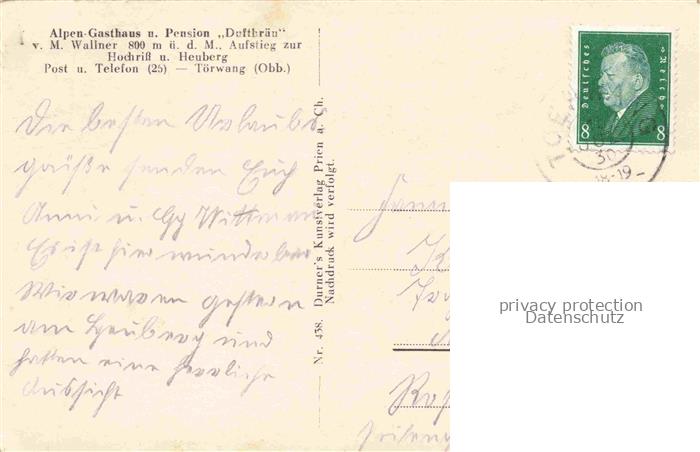 Alpen-Gasthaus u. Pension „Duftbräu“
v. M. Wallner 800 m ü. d. M., Aufstieg zur
Hochriß u. Heuberg
Post u. Telefon (25) — Törwang (Obb.)
Die besten Urlaubs
grüße senden Euch
Anni u. Gg Wittmann
Es ist hier wunderbar
Wir waren gestern
am Heuberg und
hatten eine herrliche
Aussicht
Nr. 438. Durner's Kunstverlag Prien a. Ch.
Nachdruck wird verfolgt.
Deutsches Reich
8 8
30
18-19
privacy protection
Datenschutz